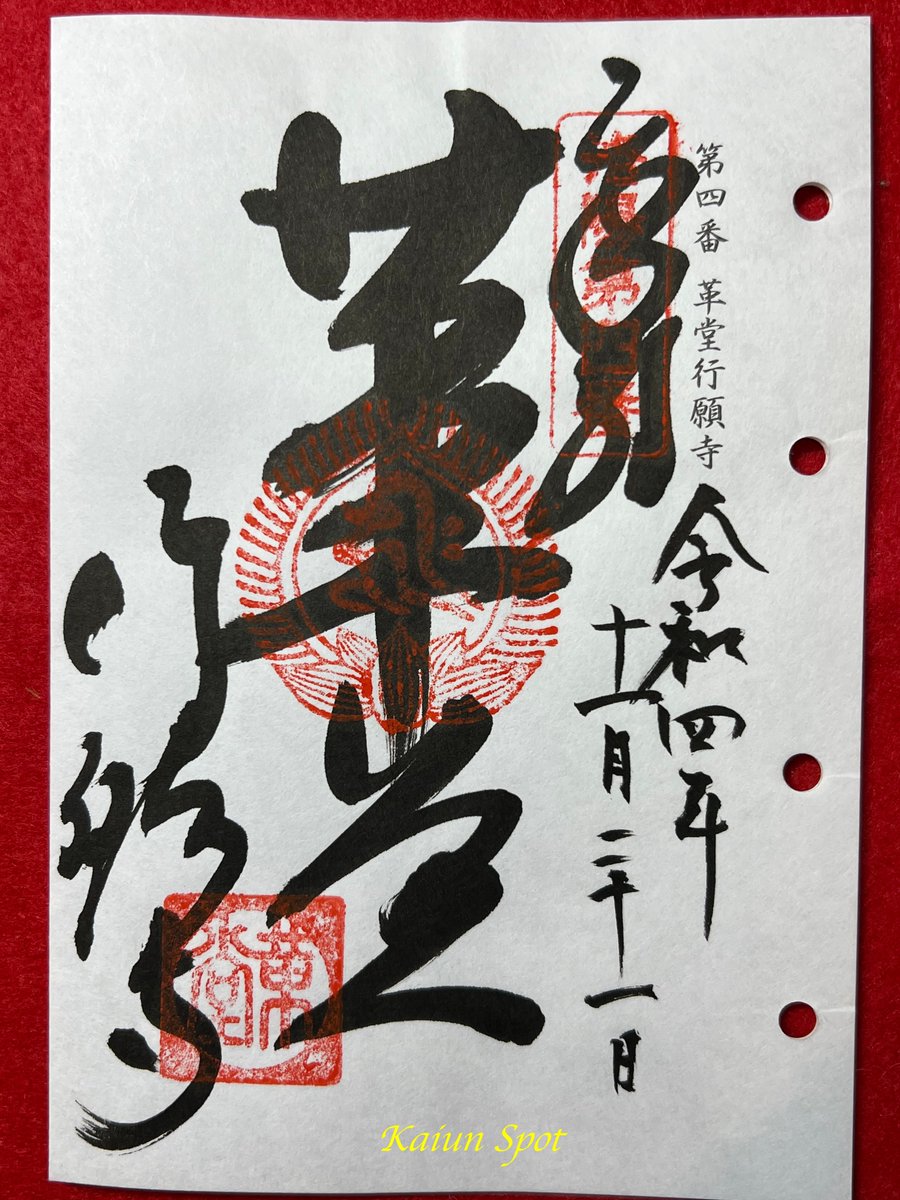 第四番 革堂行願寺
令和四年
十一月二十一日
革堂
行願寺
革堂
Kaiun Spot